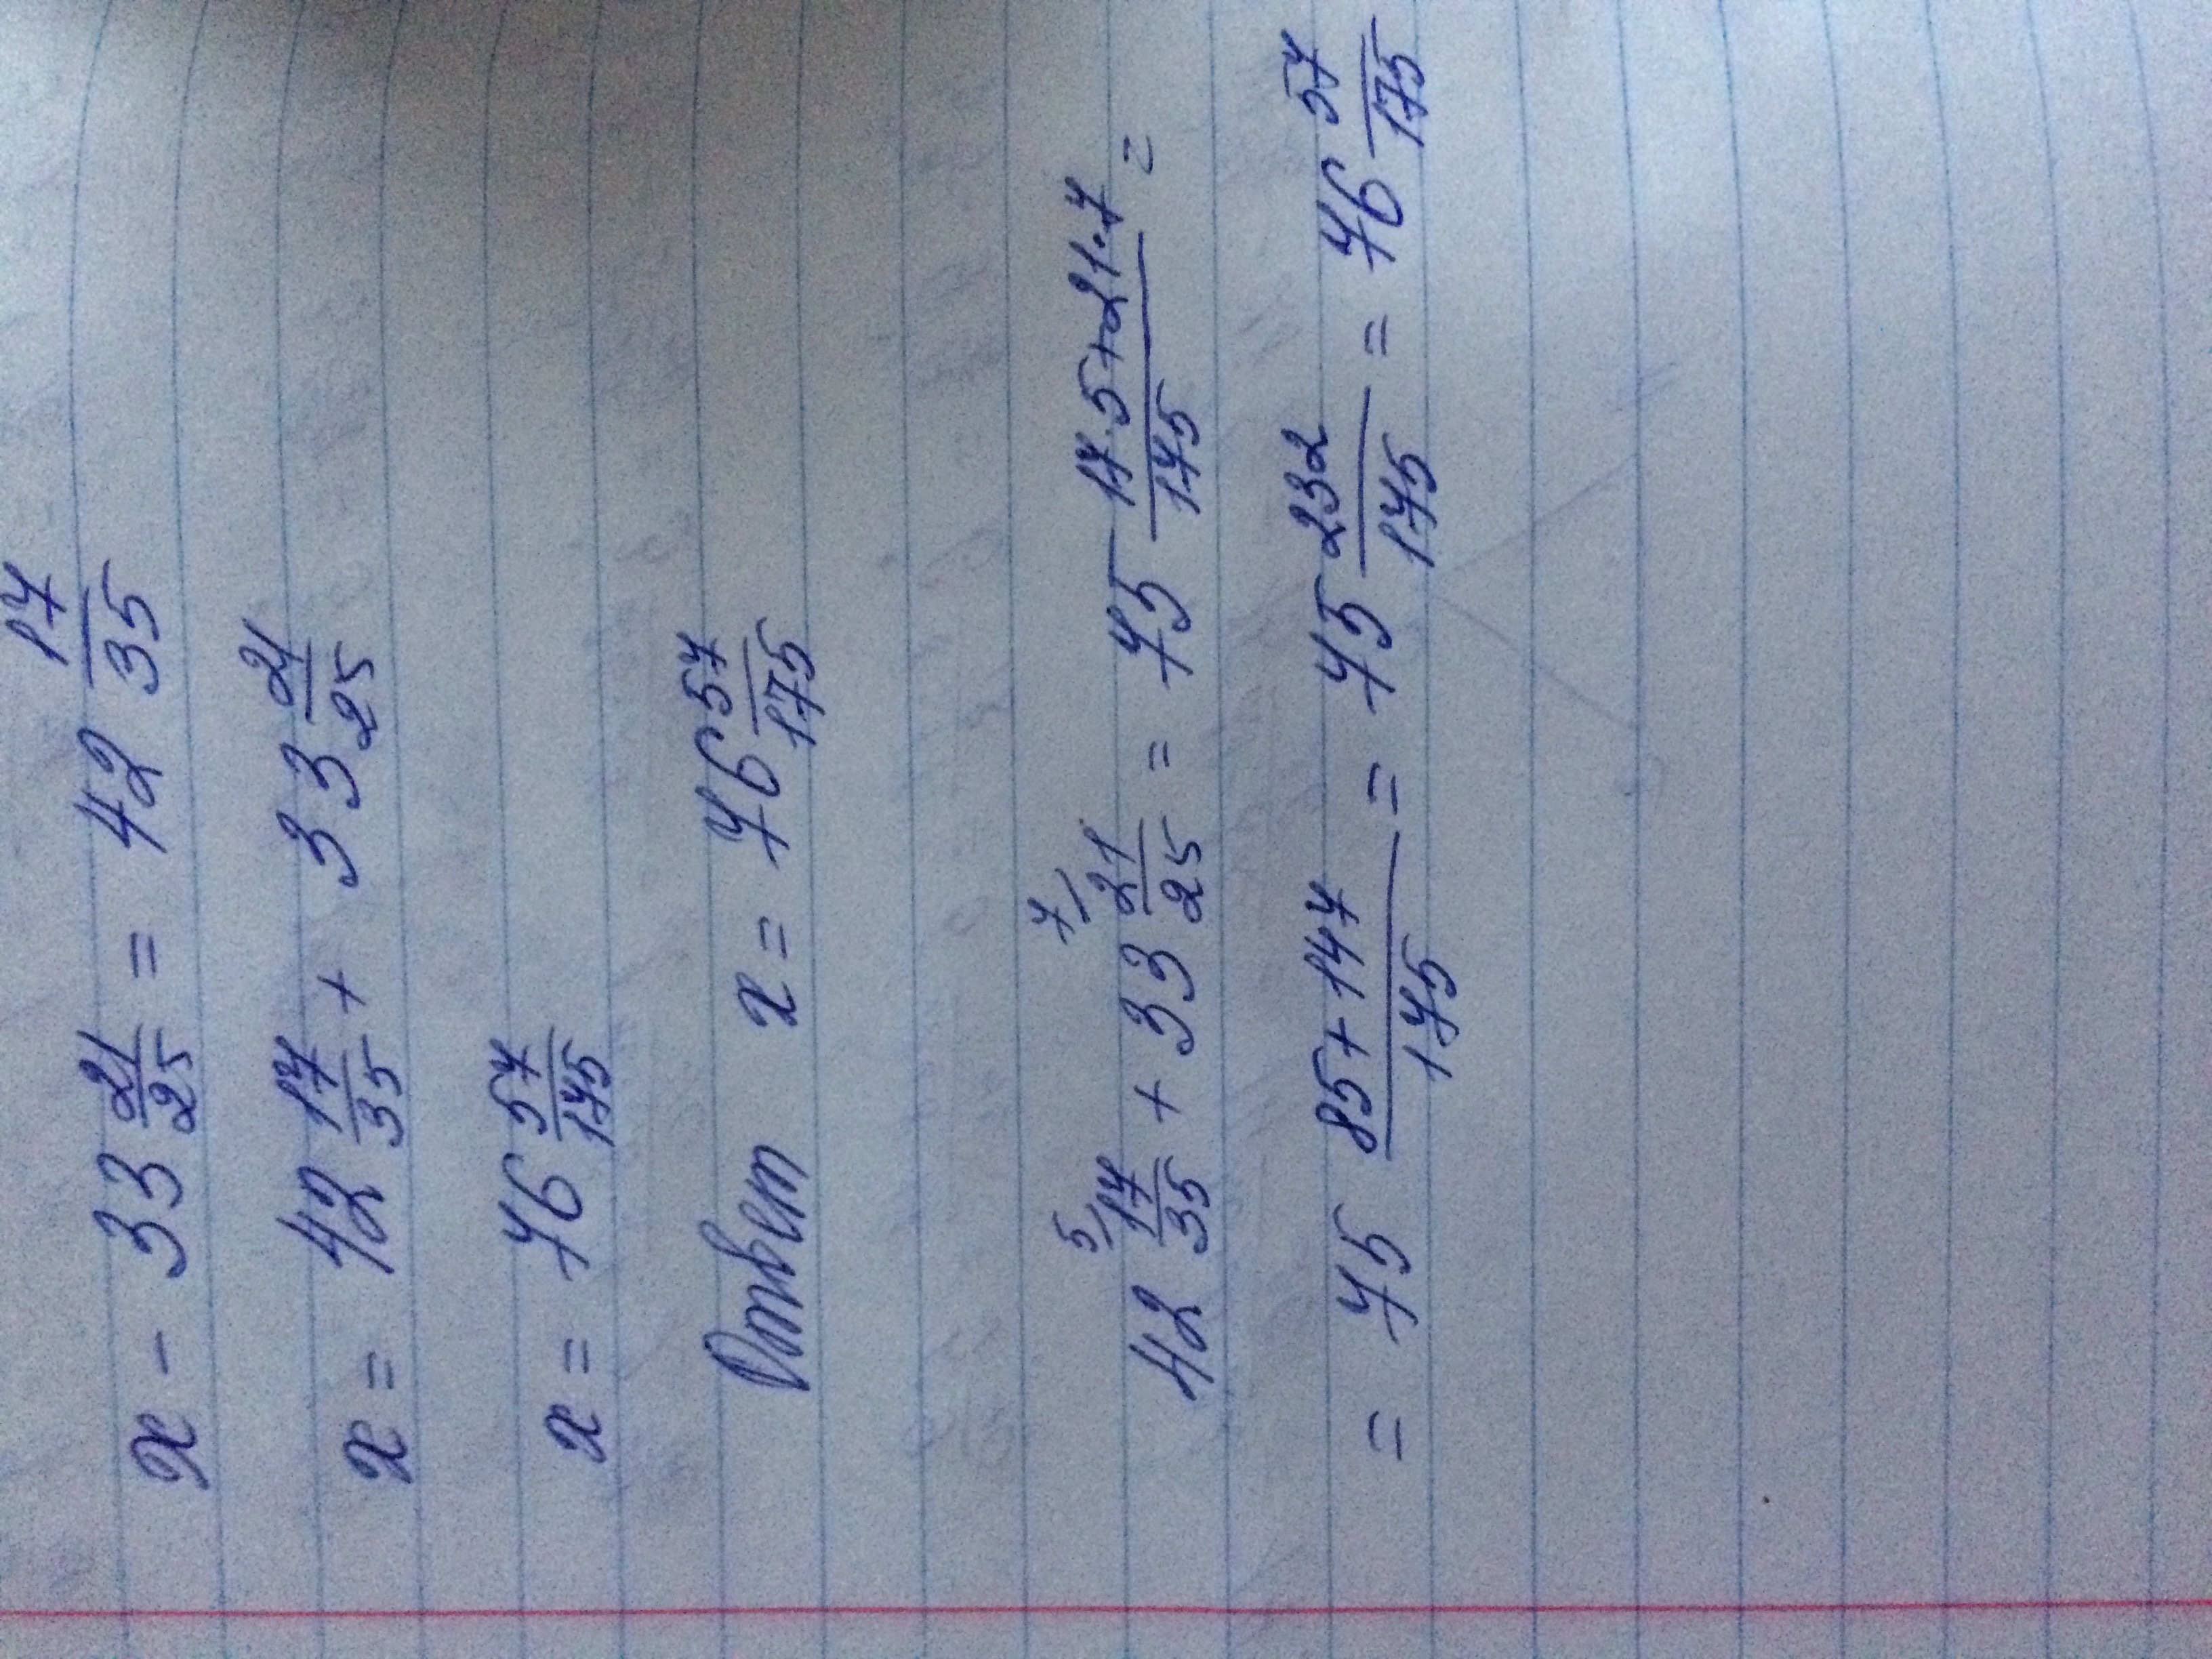 x - 33 21/25 = 42 17/35
x = 42 17/35 + 33 21/25
x = 76 57/175
Ответ x = 76 57/175
42 5/ 17/35 + 33 7/ 21/25 = 75 (17·5+21·7)/175 =
= 75 (85+147)/175 = 75 232/175 = 76 57/175